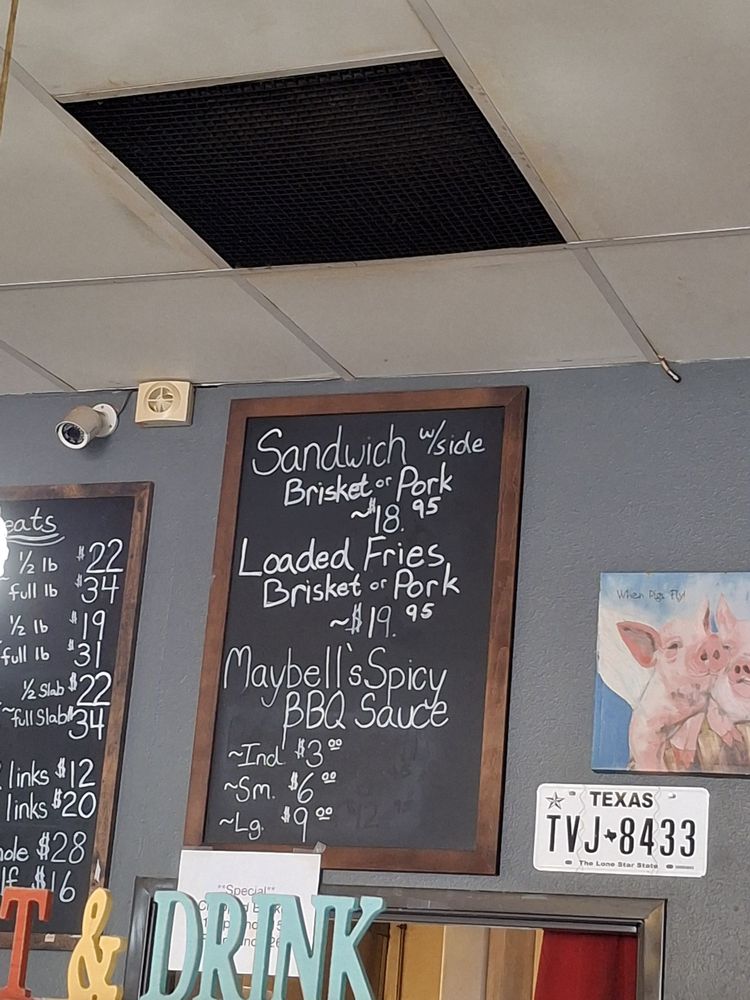 Sandwich w/side
Brisket or Pork
~$18.95
Loaded Fries
Brisket or Pork
~$19.95
Maybell's Spicy
BBQ Sauce
~Ind. $3.00
~Sm. $6.00
~Lg. $9.00
eats
1/2 lb $22
full lb $34
1/2 lb $19
full lb $31
1/2 Slab $22
~full Slab $34
links $12
links $20
ole $28
lf $16
When Pigs Fly!
TEXAS
TVJ 8433
The Lone Star State
**Special**
T & DRINK